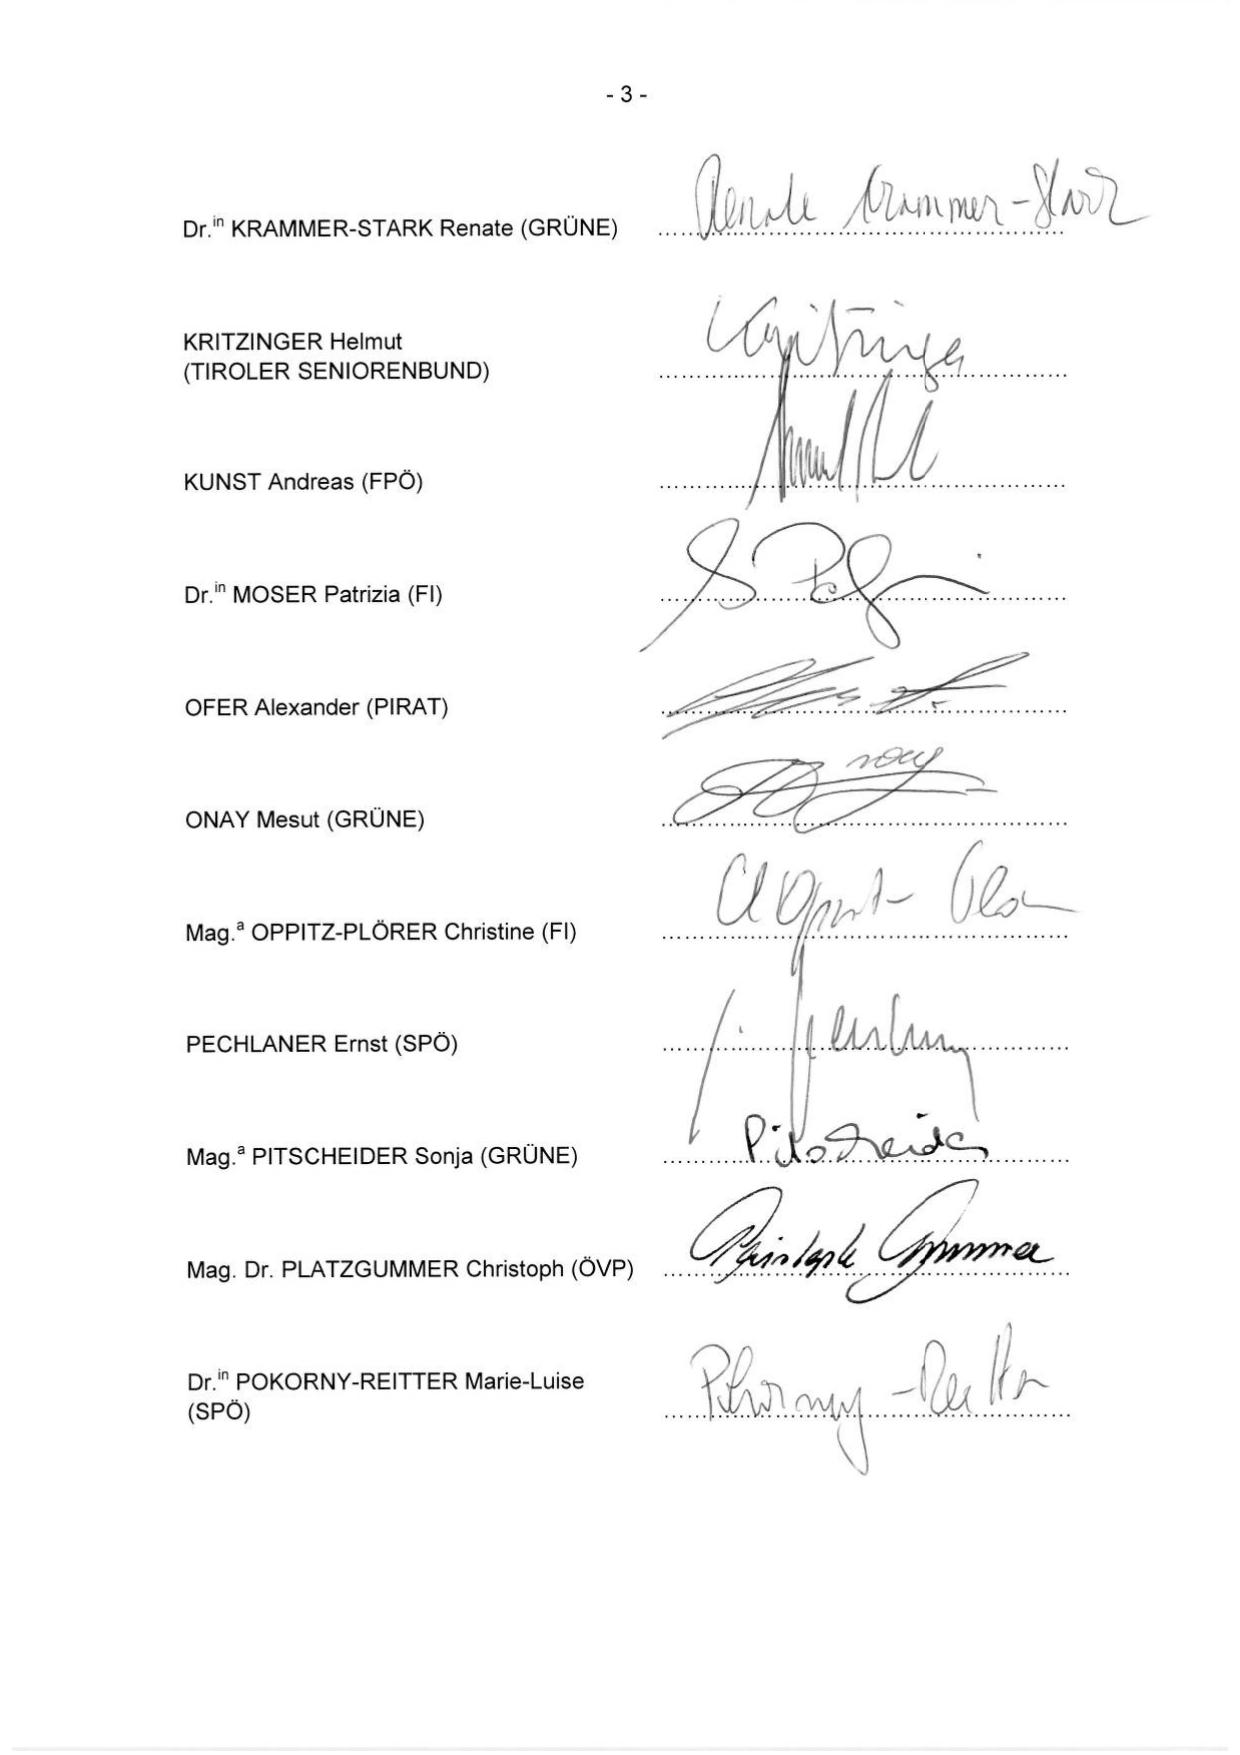 - 3 -
Dr.in KRAMMER-STARK Renate (GRÜNE) Renate Krammer-Stark
KRITZINGER Helmut
(TIROLER SENIORENBUND) Kritzinger
KUNST Andreas (FPÖ)
Dr.in MOSER Patrizia (FI)
OFER Alexander (PIRAT)
ONAY Mesut (GRÜNE)
Mag.a OPPITZ-PLÖRER Christine (FI)
PECHLANER Ernst (SPÖ)
Mag.a PITSCHEIDER Sonja (GRÜNE) Pitscheider
Mag. Dr. PLATZGUMMER Christoph (ÖVP)
Dr.in POKORNY-REITTER Marie-Luise Pokorny-Reitter
(SPÖ)